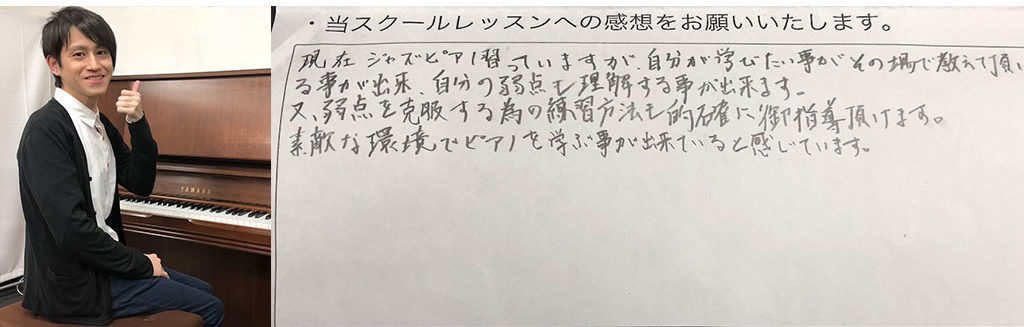 YAMAHA
・当スクールレッスンへの感想をお願いいたします。
現在ジャズピアノ習っていますが、自分が学びたい事がその場で教えて頂け
る事が出来、自分の弱点も理解する事が出来ます。
又、弱点を克服する為の練習方法も的確に御指導頂けます。
素敵な環境でピアノを学ぶ事が出来ていると感じています。